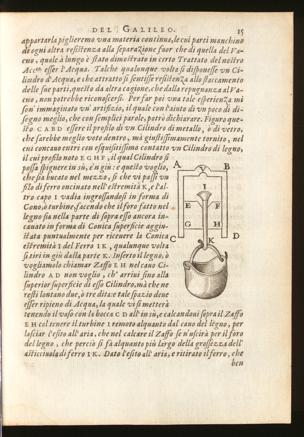 DEL GALILEO. 15
appartarla piglieremo vna materia continua, le cui parti manchino
di ogni altra resistenza alla separazione fuor che di quella del Va-
cuo, quale à lungo è stato dimostrato in certo Trattato del nostro
Acc.co esser l'Acqua. Talche qualunque volta si disponesse vn Ci-
lindro d'Acqua, e che attratto si sentisse resistenza allo staccamento
delle sue parti, questo da altra cagione, che dalla repugnanza al Va-
cuo, non potrebbe riconoscersi. Per far poi vna tale esperienza mi
son' immaginato vn' artifizio, il quale con l'aiuto di vn poco di di-
segno meglio, che con semplici parole, potrò dichiarare. Figuro que-
sto CABD essere il profilo di vn Cilindro di metallo, ò di vetro,
che sarebbe meglio voto dentro, mà giustissimamente tornito, nel
cui concauo entri con esquisitissimo contatto vn Cilindro di legno,
il cui profilo noto EGHF, il qual Cilindro si
possa spignere in sù, e'n giù: e questo voglio,
che sia bucato nel mezzo, sì che vi passi vn
filo di ferro oncinato nell'estremità K, e l'al-
tro capo I vadia ingrossandosi in forma di
Cono, ò turbine, facendo che il foro fatto nel
legno sia nella parte di sopra esso ancora in-
cauato in forma di Conica superficie aggiu-
stata puntualmente per riceuere la Conica
estremità I del Ferro IK, qualunque volta
si tiri in giù dalla parte K. Inserto il legno, ò
vogliamolo chiamar Zaffo EH nel cauo Ci-
lindro AD non voglio, ch' arriui sino alla
superior superficie di esso Cilindro, mà che ne
resti lontano due, ò tre dita: e tale spazio deue
esser ripieno di Acqua, la qual vi si metterà
tenendo il vaso con la bocca CD all'in sù, e calcandoui sopra il Zaffo
EH col tenere il turbine I remoto alquanto dal cauo del legno, per
lasciar l'esito all'aria, che nel calcare il Zaffo se n'uscirà per il foro
del legno, che perciò si fà alquanto più largo della grossezza dell'
asticciuola di ferro IK. Dato l'esito all'aria, e ritirato il ferro, che
ben
A B
I
E F
G H
C D
K